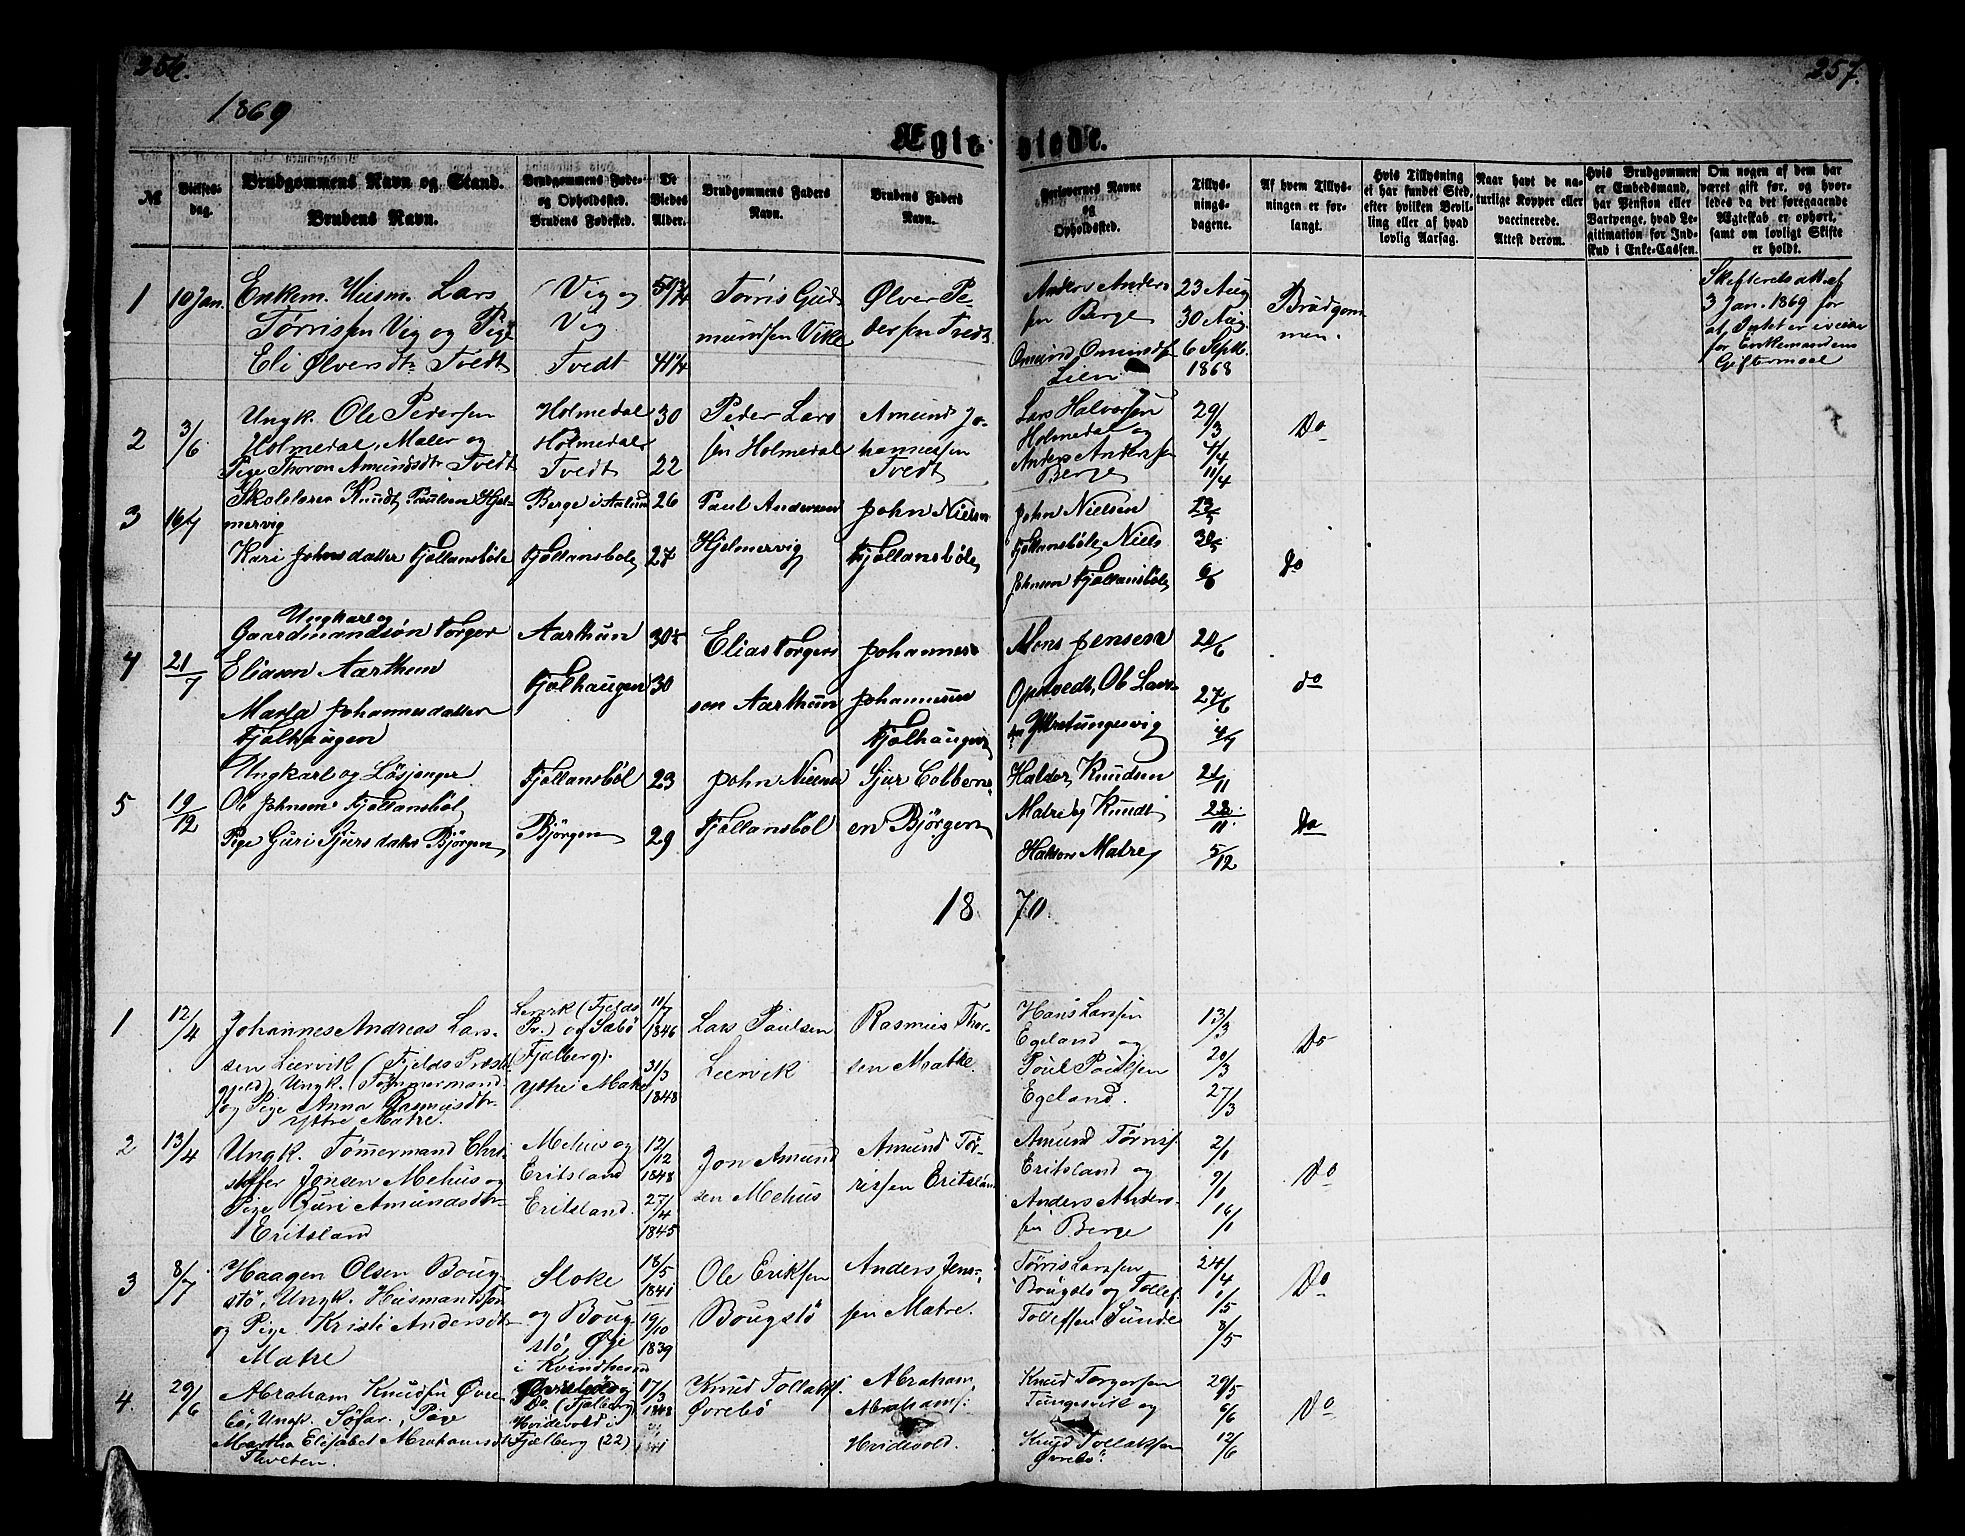 256.
257.
1869
Ægteviede.
№
Vielses-
dag.
Brudgommens Navn og Stand.
Brudens Navn.
Brudgommens Føde-
og Opholdssted.
Brudens Fødested.
De
Viedes
Alder.
Brudgommens Faders
Navn.
Brudens Faders
Navn.
Forlovernes Navne
og
Opholdssted.
Tillys-
nings-
dagene.
Af hvem Tillys-
ningen er for-
langt.
Hvis Tillysning
ei har fundet Sted,
efter hvilken Bevil-
ling eller af hvad
lovlig Aarsag.
Naar havt de na-
turlige Kopper eller
vaccinerede.
Attest derom.
Hvis Brudgommen
er Embedsmand,
har Pension eller
Vartpenge, hvad Le-
gitimation for Ind-
skud i Enke-Cassen.
Om nogen af dem har
været gift før, og hvor-
ledes da det foregaaende
Ægteskab er ophørt,
samt om lovligt Skifte
er holdt.
1
10 Jan.
Enkem. Husm. Lars
Tørrissen Vig og Pige
Eli Ølversdtr Tvedt
Vig og
Vig
Tvedt
41 1/4
Tørris Gud-
mundsen Vike
Ølver Pe-
dersen Tvedt
Anders Anders-
sen Berge
Omund Omunds.
Lien
23 Aug
30 Aug.
6 Septb.
1868
Brudgom-
men.
Skifteretsattest af
3 Jan. 1869 for
at Intet er i veien
for Enkemandens
Giftermaal
2
3/6
Ungk. Ole Pedersen
Holmedal, Maler og
Pige Thoron Amundsdtr Tvedt
Holmedal
Holmedal
Tvedt
30
22
Peder Lars-
sen Holmedal
Amund Jo-
hannessen
Tvedt
Lars Halvorsen
Holmedal og
Anders Andersen
Berge
29/3
4/4
11/4
Do
3
16/7
Skolelærer Knudt Paulsen Hjel-
mervig
Kari Johnsdatter Fjollansbøle
Berge i
Fjollansbole
26
27
Paul Andersen
Hjelmervig
John Nielsen
Fjollansbøle
John Nielsen
Fjollansbøle, Niels
Johnsen Fjollansbøle
23/5
30/5
6/6
Do
4
21/7
Ungkarl og
Gaardmandsøn Torger
Eliasen Aarthun
Marta Johannesdatter
Fjolhaugen
Aarthun
Fjolhaugen
30½
30
Elias Torgers-
son Aarthun
Johannes
Johannesen
Fjolhaugen
Mons Jensen
Opsvedt, Ob Lars-
sen Ytretungesvig
20/6
27/6
4/7
do
5
19/12
Ungkarl og Løsjænger
Ole Johnsen Fjollansbøl
Pige Guri Sjursdatter Bjørgen
Fjollansbøl
Bjørgen
23
29
John Nielsen
Fjollansbøl
Sjur Colbens-
en Bjørgen
Haldor Knudsen
Matre og Knudt
Haldors Matre
21/11
28/11
5/12
Do
1870
1
12/4
Johannes Andreas Lars-
sen Leervik (Fjelds Præste-
gjeld) Ungk. (Tømmermand
og Pige Anna Rasmusdtr
Ytre Matre.
Lervik (Fjelds
Pr.) og Sæbø
Fjælberg).
Ytre Matre
11/7
1846
31/3
1848
Lars Paulsen
Leervik
Rasmus Thor-
sen Matre
Hans Larssen
Egeland og
Poul Poulsen
Egeland.
13/3
20/3
27/3
Do
2
13/4
Ungk. Tømmermand Chri-
stoffer Jonsen Mehus og
Pige Guri Amundsdtr
Eritsland
Mehus og
Eritsland
Eritsland.
12/12
1848
27/4
1845
Jon Amund-
sen Mehus
Amund Tør-
rissen Eritsland
Amund Tørriss.
Eritsland og
Anders Anders-
sen Berge
2/1
9/1
16/1
Do
3
8/7
Haagen Olsen Boug-
stø, Ungk. Husmandssøn
og Pige Kristi Andersdtr
Matre
Sloke
og Boug-
stø, Øye
i Kvindherred
18/5
1841
19/10
1839
Ole Eriksen
Bougstø
Anders Jens-
sen Matre.
Tørris Larssen
Bougstø og Tollef
Tollefsen Sunde
24/4
1/5
8/5
Do
4
29/6
Abraham Knudsen Øvre-
bø, Ungk. Søfar., Pige
Martha Elisabet Abrahamsdtr
Tveten.
Do (Fjælberg)
Hvidevold i
Fjælberg (22)
17/3
1848
Knud Tollaks.
Øvrebø
Abraham
Abrahams.
Hvidevold.
Knud Torgersen
Tungesvik og
Knud Tollaksen
Øvrebø.
29/5
6/6
12/6
Do